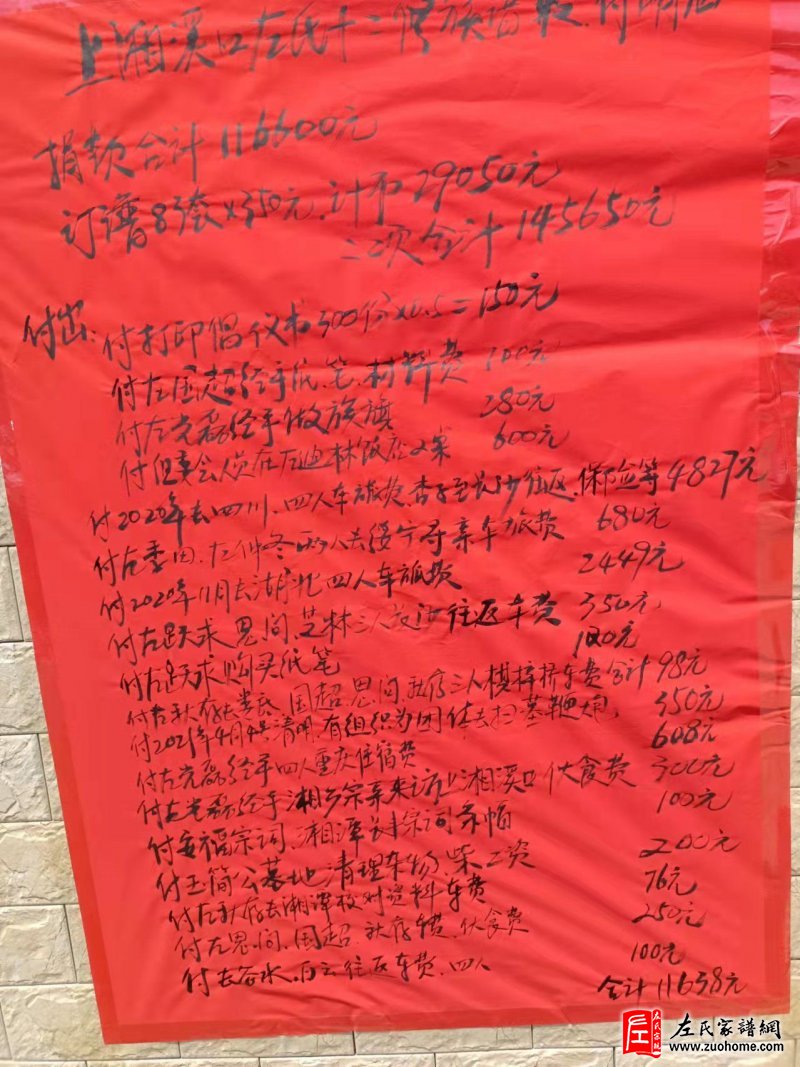 上湘溪口左氏十二修族谱
捐款合计116600元
订谱83套×350元.计币29050元
二次合计145650元
付出:付打印倡仪书300份×0.5=150元
付左国超经手纸、笔、材料费 100元
付左光磊经手做族旗 280元
付但委会人员在左迪林饭店2桌 600元
付2020年去四川、四人车旅费、杏子至长沙往返、保险等4827元
付左季田、左仲冬两人去绥宁寻亲车旅费 680元
付2020年11月去湖北四人车旅费 2449元
付左跃求、思问、芝林三人长沙往返车费 350元
付左跃求购买纸笔 100元
付左秋存去娄底、国超、思问、秋存三人棋梓桥车费合计98元
付2021年4月4号清明、有组织为团体去扫墓鞭炮 350元
付左光磊经手四人重庆住宿费 608元
付左光磊经手湘乡宗亲来访上湘溪口 伙食费 300元
付安福宗词、湘潭射埠宗词条幅 100元
付玉简公墓地清理杂物、柴工资 200元
付左秋存去湘潭校对资料车费 76元
付左思问、国超、秋存车费、伙食费 250元
付去谷水、白云往返车费、四人 100元
合计11638元
左氏家譜網
www.zuohome.com